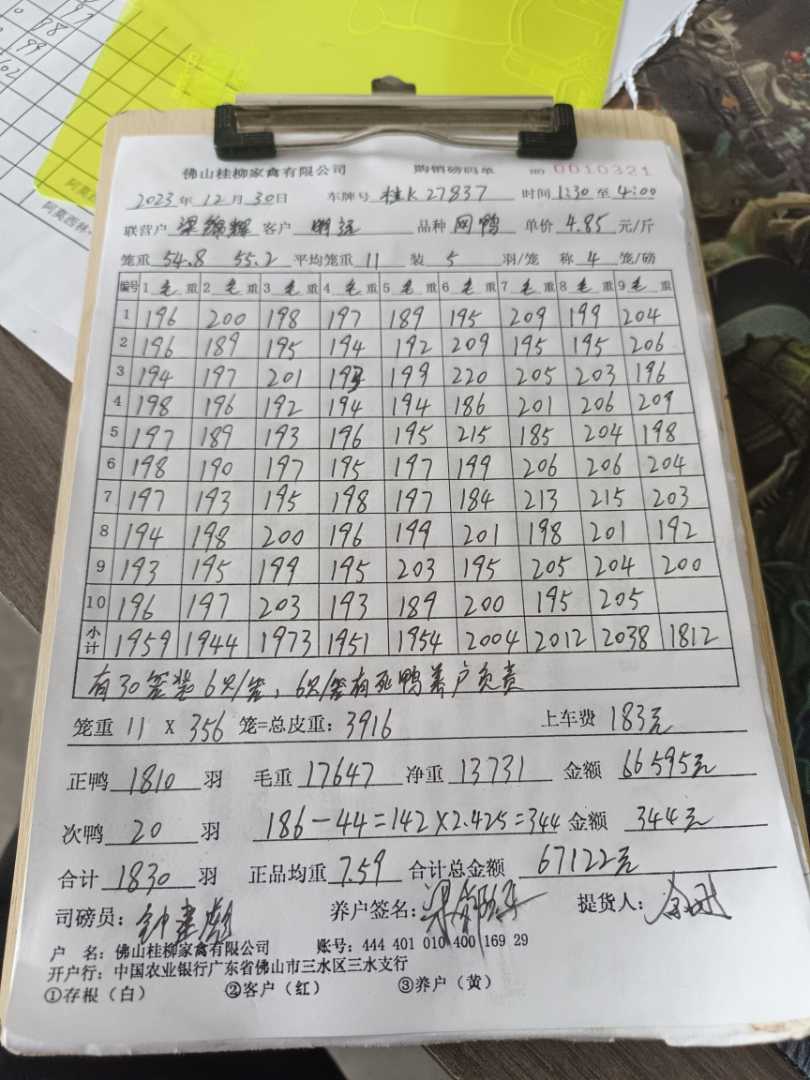 佛山桂柳家禽有限公司 购销磅码单 NO 0010321
2023年12月30日 车牌号 桂K27837 时间 1:30 至 4:00
联营户 梁锦辉 客户 明远 品种 网鸭 单价 4.85 元/斤
笼重 54.8 55.2 平均笼重 11 装 5 羽/笼 称 4 笼/磅
编号 1 毛 重 2 毛 重 3 毛 重 4 毛 重 5 毛 重 6 毛 重 7 毛 重 8 毛 重 9 毛 重
1 196 200 198 197 189 195 209 199 204
2 196 189 195 194 192 209 195 195 206
3 194 197 201 193 199 220 205 203 196
4 198 196 192 194 194 186 201 206 209
5 197 189 193 196 195 215 185 204 198
6 198 190 197 195 197 199 206 206 204
7 197 193 195 198 197 184 213 215 203
8 194 198 200 196 199 201 198 201 192
9 193 195 199 195 203 195 205 204 200
10 196 197 203 193 189 200 195 205
小计 1959 1944 1973 1951 1954 2004 2012 2038 1812
有30笼装6只/笼，6只/笼有死鸭养户负责
笼重 11 X 356 笼=总皮重：3916 上车费 183元
正鸭 1810 羽 毛重 17647 净重 13731 金额 66595元
次鸭 20 羽 186-44=142×2.425=344 金额 344元
合计 1830 羽 正品均重 7.59 合计总金额 67122元
司磅员： 养户签名： 提货人：
户 名：佛山桂柳家禽有限公司 账号：444 401 010 400 169 29
开户行：中国农业银行广东省佛山市三水区三水支行
①存根（白） ②客户（红） ③养户（黄）